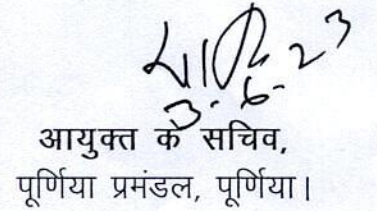 3.6.23
आयुक्त के सचिव,
पूर्णिया प्रमंडल, पूर्णिया।